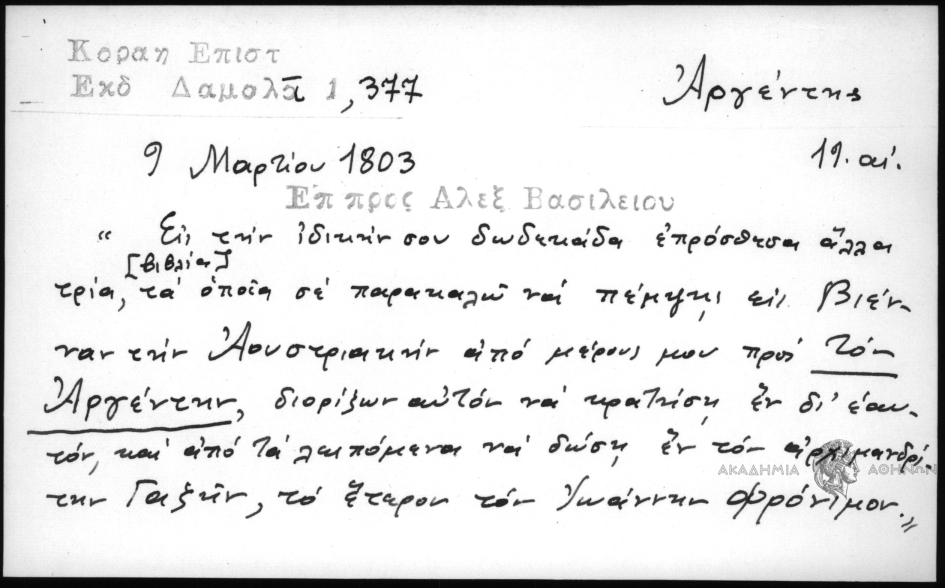 Κοραη Επιστ
Εκδ Δαμαλᾶ 1, 377
Ἀργέντης
9 Μαρτίου 1803
19. αἰ.
Επ προς Αλεξ Βασιλειου
" Εἰς τὴν ἰδικήν σου δωδεκάδα ἐπρόσθεσα ἄλλα
[βιβλία]
τρία, τὰ ὁποῖα σὲ παρακαλῶ νὰ πέμψῃς εἰς Βιέν-
ναν τὴν Ἀουστριακὴν ἀπὸ μέρους μου πρὸς τὸν
Ἀργέντην, διορίζων αὐτὸν νὰ κρατήσῃ ἓν δι' ἑαυ-
τόν, καὶ ἀπὸ τὰ λειπόμενα νὰ δώσῃ ἓν τὸν ἀρχιμανδρί-
την Γαζῆν, τὸ ἕτερον τὸν Ἰωάννην Φρόνιμον."
ΑΚΑΔΗΜΙΑ ΑΘΗΝΩΝ